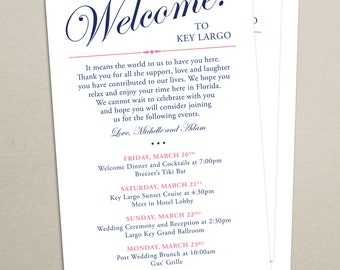 Welcome!
TO
KEY LARGO
It means the world to us to have you here.
Thank you for all the support, love and laughter
you have contributed to our lives. We hope you
relax and enjoy your time here in Florida.
We cannot wait to celebrate with you
and hope you will consider joining
us for the following events.
Love, Michelle and Adam
FRIDAY, MARCH 20TH
Welcome Dinner and Cocktails at 7:00pm
Breezer's Tiki Bar
SATURDAY, MARCH 21ST
Key Largo Sunset Cruise at 4:30pm
Meet in Hotel Lobby
SUNDAY, MARCH 22ND
Wedding Ceremony and Reception at 2:30pm
Largo Key Grand Ballroom
MONDAY, MARCH 23RD
Post Wedding Brunch at 10:00am
Gus' Grille